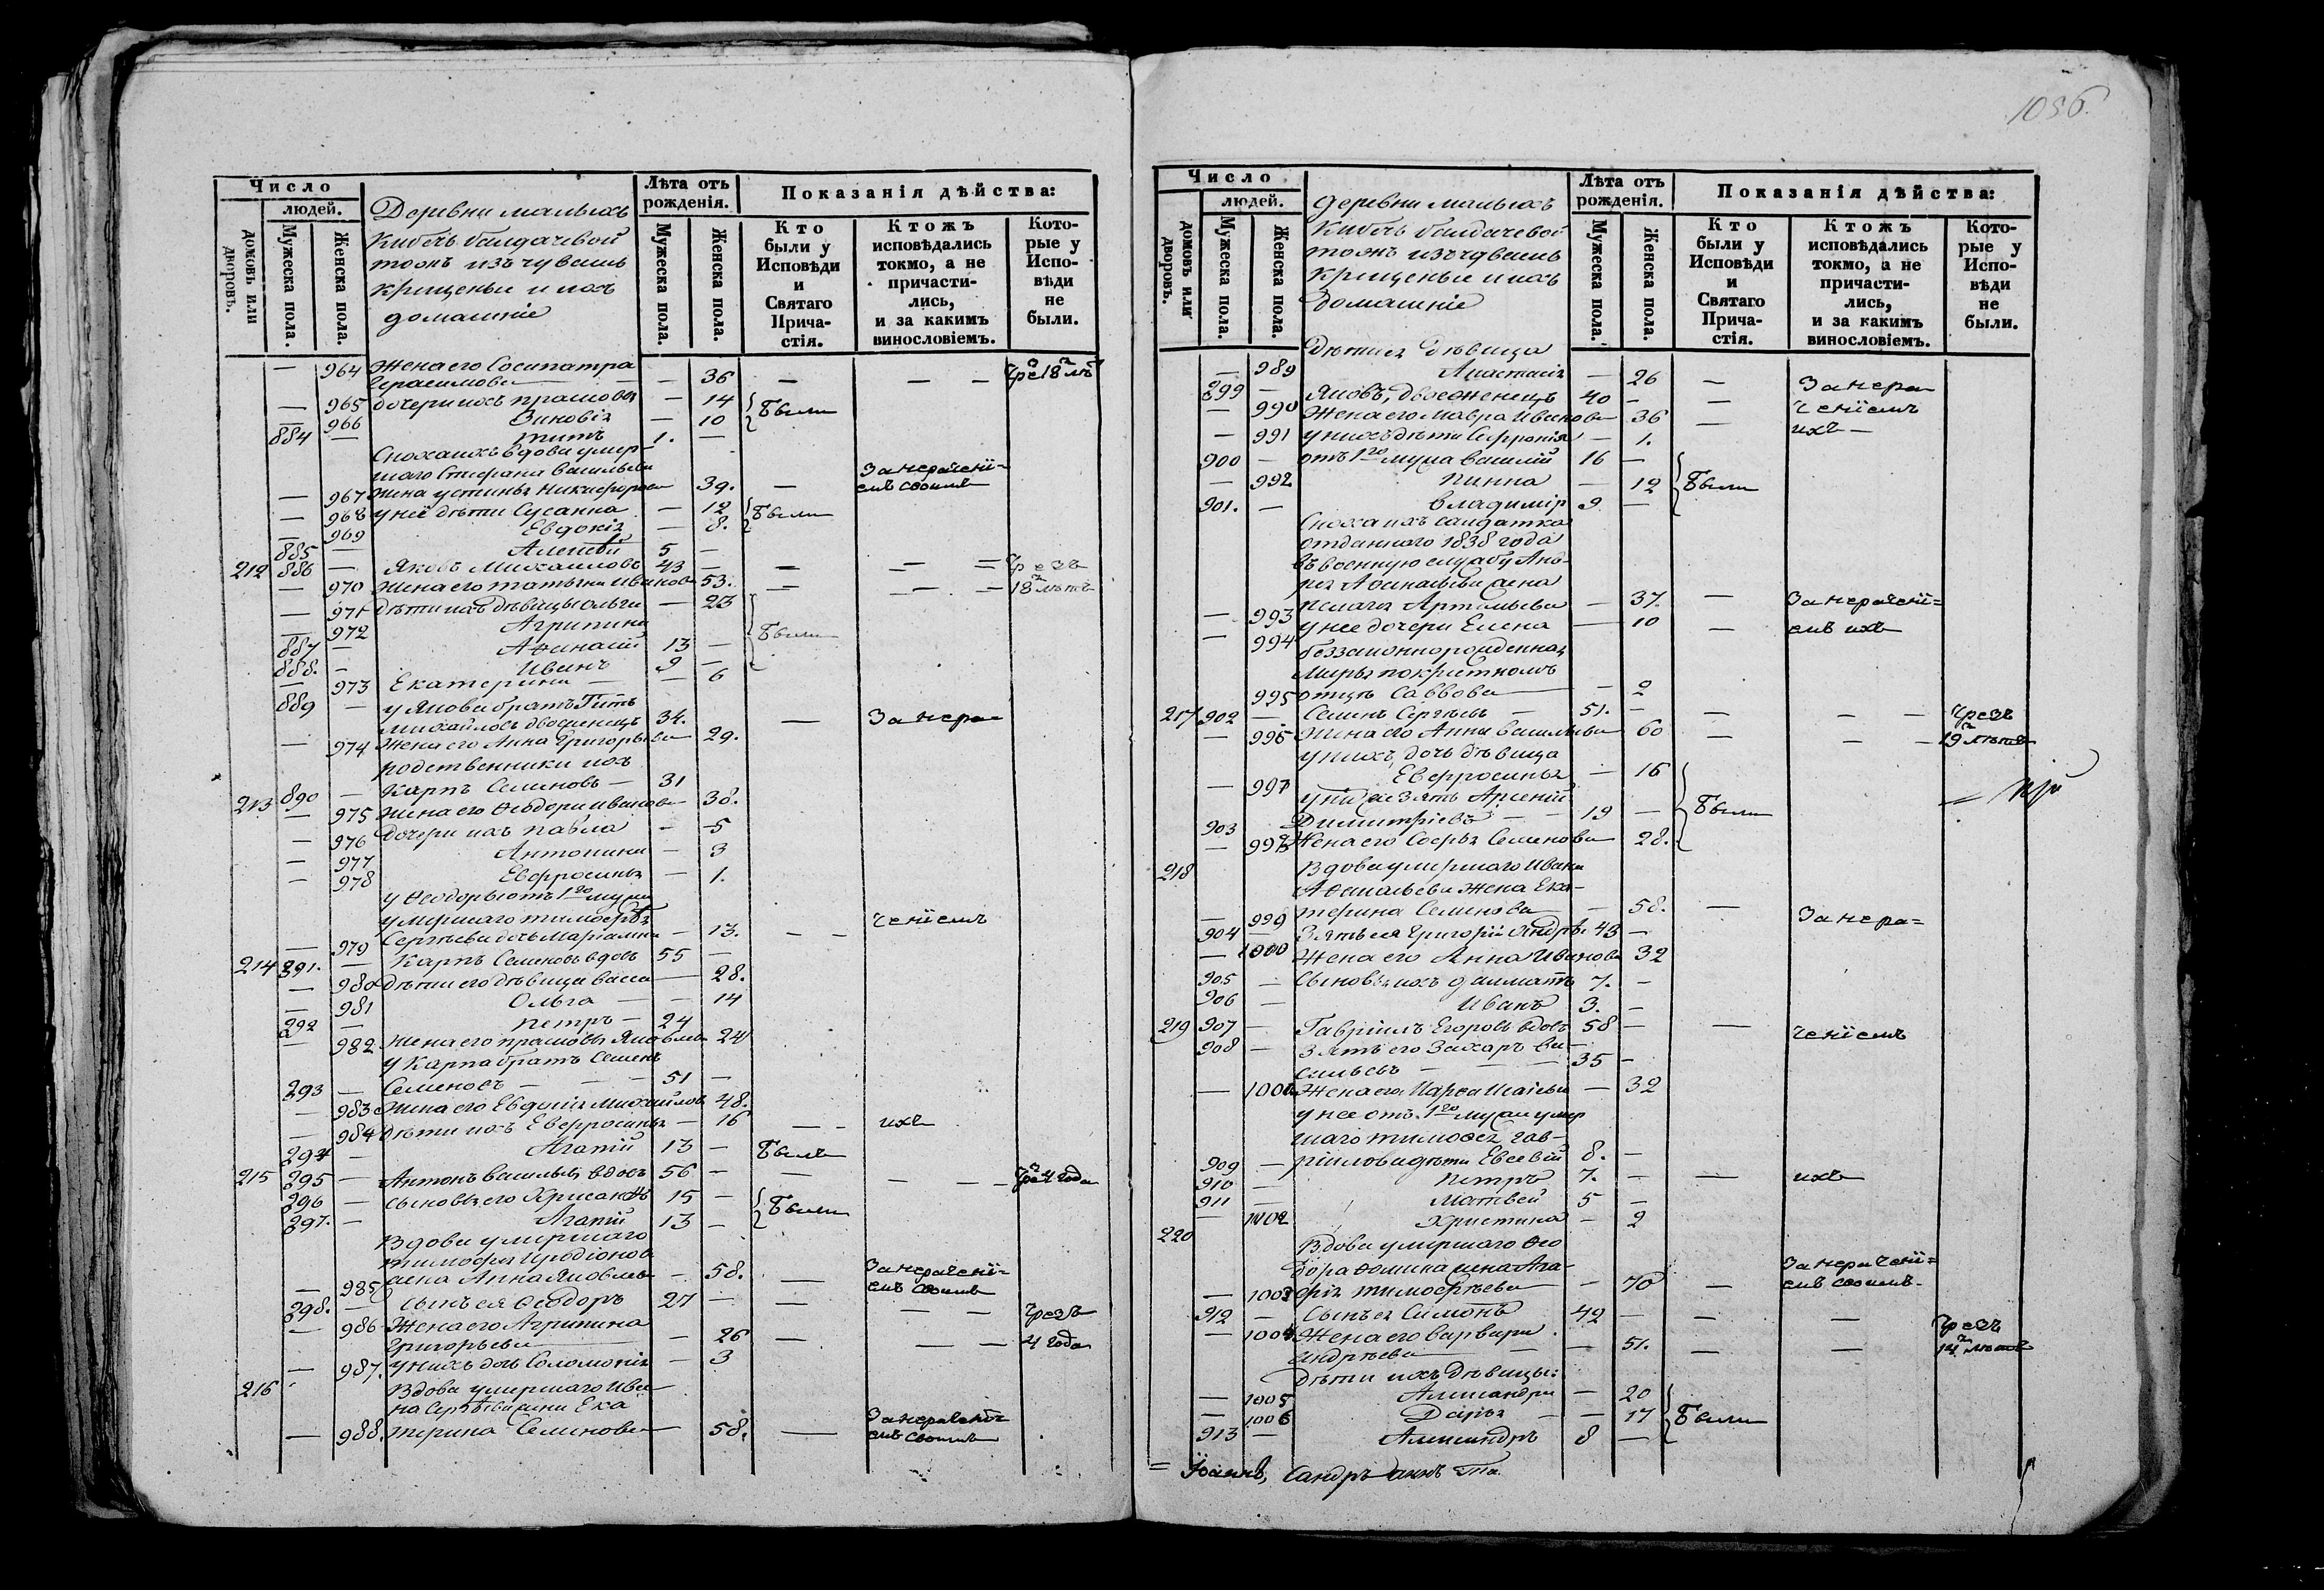 1056.
Число
людей.
домовъ или дворовъ.
Мужеска пола.
Женска пола.
Деревни малыхъ
Кибечь Балдачевой
тожъ изъ чувашъ
крещеныя и ихъ
домашніе
Лѣта отъ рожденія.
Мужеска пола.
Женска пола.
Показанія дѣйства:
Кто были у Исповѣди и Святаго Прича-стія.
Ктожъ исповѣдались токмо, а не причасти-лись, и за какимъ винословіемъ.
Кото-рые у Испо-вѣди не были.
— 964 Жена его Сосипатра
Герасимова — 36 — — —
— 965 дочери ихъ — 14 Были
— 966 Зиновія — 10
884 — Титъ 1. —
Сноха ихъ вдова умер-
шаго Стефана Васильева
— 967 жена Устинья Никифорова 39. — За нераченіемъ своимъ
— 968 у неё дѣти Сусанна — 12 Были
— 969 Евдокія — 8.
885 — Алексѣй 5 —
212 886 — Яковъ Михайловъ 43 — — — Чрезъ
— 970 Жена его Татьяна Иванова 53. — — 18 лѣтъ
— 971 дѣти ихъ дѣвицы Ольга — 23
— 972 Агрипина Были
887 — Аѳанасій 13 —
888. — Иванъ 9 —
— 973 Екатерина — 6
889 — у Якова братъ Титъ
Михайловъ двоеженецъ 34. — За нера-
— 974 Жена его Анна Григорьева 29.
родственники ихъ
213 890 — Карпъ Семеновъ — 31
— 975 Жена его Ѳеодора Иванова 38.
— 976 Дочери ихъ Павла — 5
— 977 Антонина — 3
— 978 Евфросинья — 1.
у Ѳеодоры отъ 1го мужа
умершаго Тимоѳея ченіемъ
— 979 Сергѣева дочь Маріамна — 13. — —
214 291. — Карпъ Семеновъ вдовъ 55 —
— 980 Дѣти его дѣвица Васса — 28.
— 981 Ольга — 14
292 — Петръ — 24
— 982 Жена его Яковлева 24
у Карпа братъ Семенъ
293 — Семеновъ — 51 —
— 983 Жена его Евдокія Михайлова 48.
— 984 дѣти ихъ Евфросинья — 16 — — ихъ
294 — Агапій 13 — Былъ
215 295 — Антонъ Васильевъ вдовъ 56 — — — 4 года
296 — сыновья его Хрисанфъ 15 — Были
297. — Агапій 13 —
Вдова умершаго
Тимофея Иродіонова
— 985 жена Анна Яковлева — 58. — За нераченіемъ своимъ
298. — Сынъ ея Ѳеодоръ 27 — — — Чрезъ
— 986 Жена его Агрипина
Григорьева — 26 — — 4 года
— 987. у нихъ дочь Соломонія — 3
216 Вдова умершаго Ива-
на Сергѣева жена Ека
— 988. терина Семенова — 58. — За нераченіемъ своимъ
Число
людей.
домовъ или дворовъ.
Мужеска пола.
Женска пола.
Деревни малыхъ
Кибечь Балдачевой
тожъ изъ чувашъ
крещеныя и ихъ
домашніе
Лѣта отъ рожденія.
Мужеска пола.
Женска пола.
Показанія дѣйства:
Кто были у Исповѣди и Святаго Прича-стія.
Ктожъ исповѣдались токмо, а не причасти-лись, и за какимъ винословіемъ.
Кото-рые у Испо-вѣди не были.
Дѣти ея дѣвица
— 989 Анастасія — 26 — За нера-
299 — Яковъ, двоеженецъ 40 — — ченіемъ
— 990 Жена его Мавра Иванова 36 — ихъ —
— 991 у нихъ дѣти — 1.
900 — отъ 1го мужа Василій 16 —
— 992 Пинна — 12 Были
901. — Владимір 9 —
Сноха ихъ салдатка
отданнаго 1838 года
въ военную службу Анд-
рея Аѳанасьева жена
— 993 Пелагея Артемьева — 37. — За нераченіемъ ихъ
— 994 у нее дочери Елена — 10 —
беззаконнорожденная
Марья по крестномъ
995 отцѣ Саввова — 2
217 902 — Семенъ Сергѣевъ — 51. — — — Чрезъ
— 996 Жена его Анна Васильева 60 — — 19 лѣтъ
у нихъ дочь дѣвица
— 997 Евфросинья — 16
зять Арсеній
903 Димитріевъ — 19 — Были
— 998 Жена его Софья Семенова 28.
218 Вдова умершаго Ивана
Аѳанасьева жена Ека-
— 999 терина Семенова — 58. — За нера-
904 — Зять ея Григорій Андрѣе 43 —
— 1000 Жена его Анна Иванова 32
905 — Сыновья ихъ Далматъ 7. —
906 — Иванъ 3. —
219 907 — Гавріилъ Егоровъ вдовъ 58 — — ченіемъ
908 — Зять его Захаръ Ва-
сильевъ — 35 —
— 1001 Жена его Исаіева — 32
у нее отъ 1го мужа умер
шаго Тимоѳея Гав-
909 — ріилова дѣти Евсевій 8. —
910 — Петръ 7. — — ихъ
911 — Матвей 5 —
— 1002 Христина — 2
220 Вдова умершаго Ѳео
дора Ѳомина жена Ага-
— 1003 фія Тимоѳеева — 70 — За нераченіемъ своимъ
912 — Сынъ ея Симонъ 49 — — — Чрезъ
— 1004 Жена его Варвара
Андрѣева — 51. — — 14 лѣтъ
Дѣти ихъ дѣвицы:
— 1005 Александра — 20
— 1006 Дарья — 17 Были
913 — Александръ 8 —